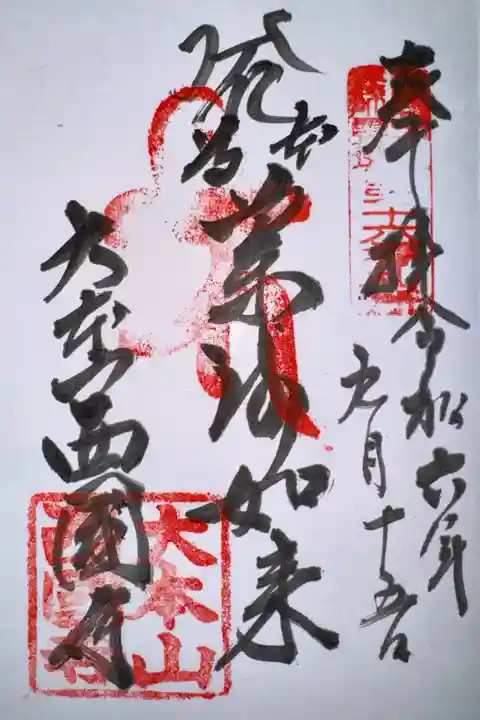 奉拝 令和六年
九月十五日
本尊
薬師如来
大本山西國寺
大本山
西國寺